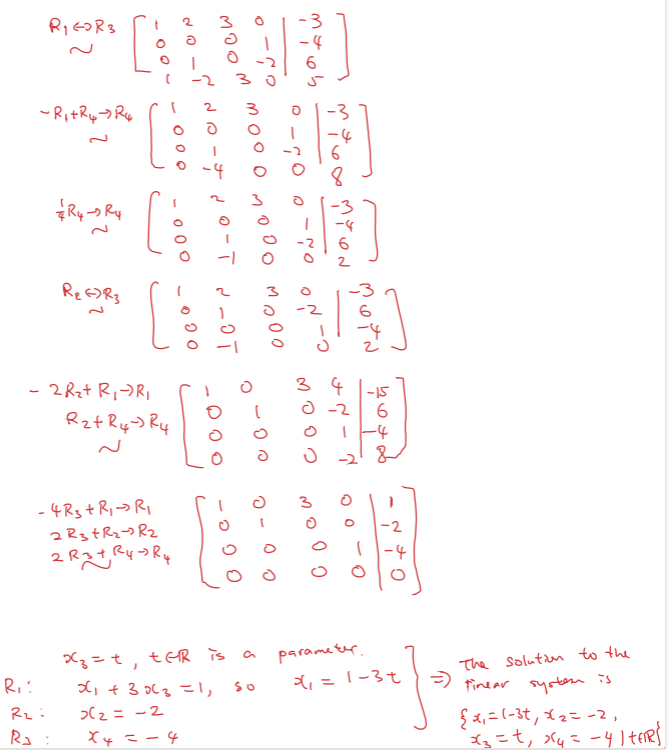 R₁↔R₃ ~ [ 1 2 3 0 | -3
0 0 0 1 | -4
0 1 0 -2 | 6
1 -2 3 0 | 5 ]
-R₁+R₄→R₄ ~ [ 1 2 3 0 | -3
0 0 0 1 | -4
0 1 0 -2 | 6
0 -4 0 0 | 8 ]
¼R₄→R₄ ~ [ 1 2 3 0 | -3
0 0 0 1 | -4
0 1 0 -2 | 6
0 -1 0 0 | 2 ]
R₂↔R₃ ~ [ 1 2 3 0 | -3
0 1 0 -2 | 6
0 0 0 1 | -4
0 -1 0 0 | 2 ]
-2R₂+R₁→R₁ [ 1 0 3 4 | -15
R₂+R₄→R₄ 0 1 0 -2 | 6
~ 0 0 0 1 | -4
0 0 0 -2 | 8 ]
-4R₃+R₁→R₁ [ 1 0 3 0 | 1
2R₃+R₂→R₂ 0 1 0 0 | -2
2R₃+R₄→R₄ 0 0 0 1 | -4
~ 0 0 0 0 | 0 ]
x₃=t, t∈ℝ is a parameter.
R₁: x₁+3x₃=1, so x₁=1-3t
R₂: x₂=-2
R₃: x₄=-4
] ⇒ The solution to the
linear system is
{x₁=1-3t, x₂=-2,
x₃=t, x₄=-4 | t∈ℝ}